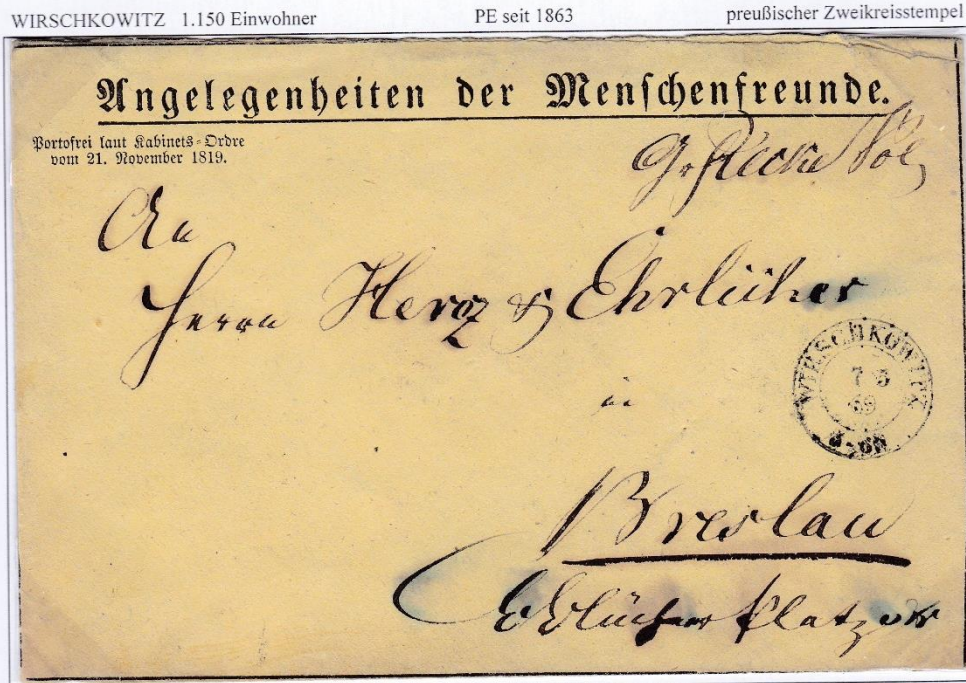 WIRSCHKOWITZ 1.150 Einwohner PE seit 1863 preußischer Zweikreisstempel
Angelegenheiten der Menschenfreunde.
Portofrei laut Kabinets-Ordre
vom 21. November 1819.
An
Herrn Herz & Ehrlicher
in
WIRSCHKOWITZ
7 5
69
Breslau
Blücher Platz